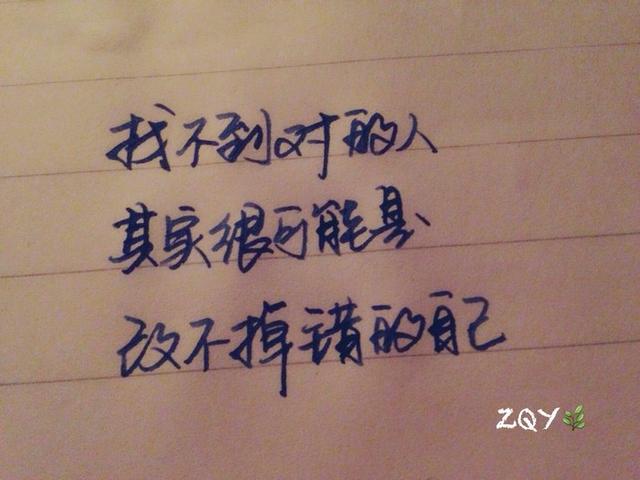 找不到对的人
其实很可能是
改不掉错的自己
ZQY🌿